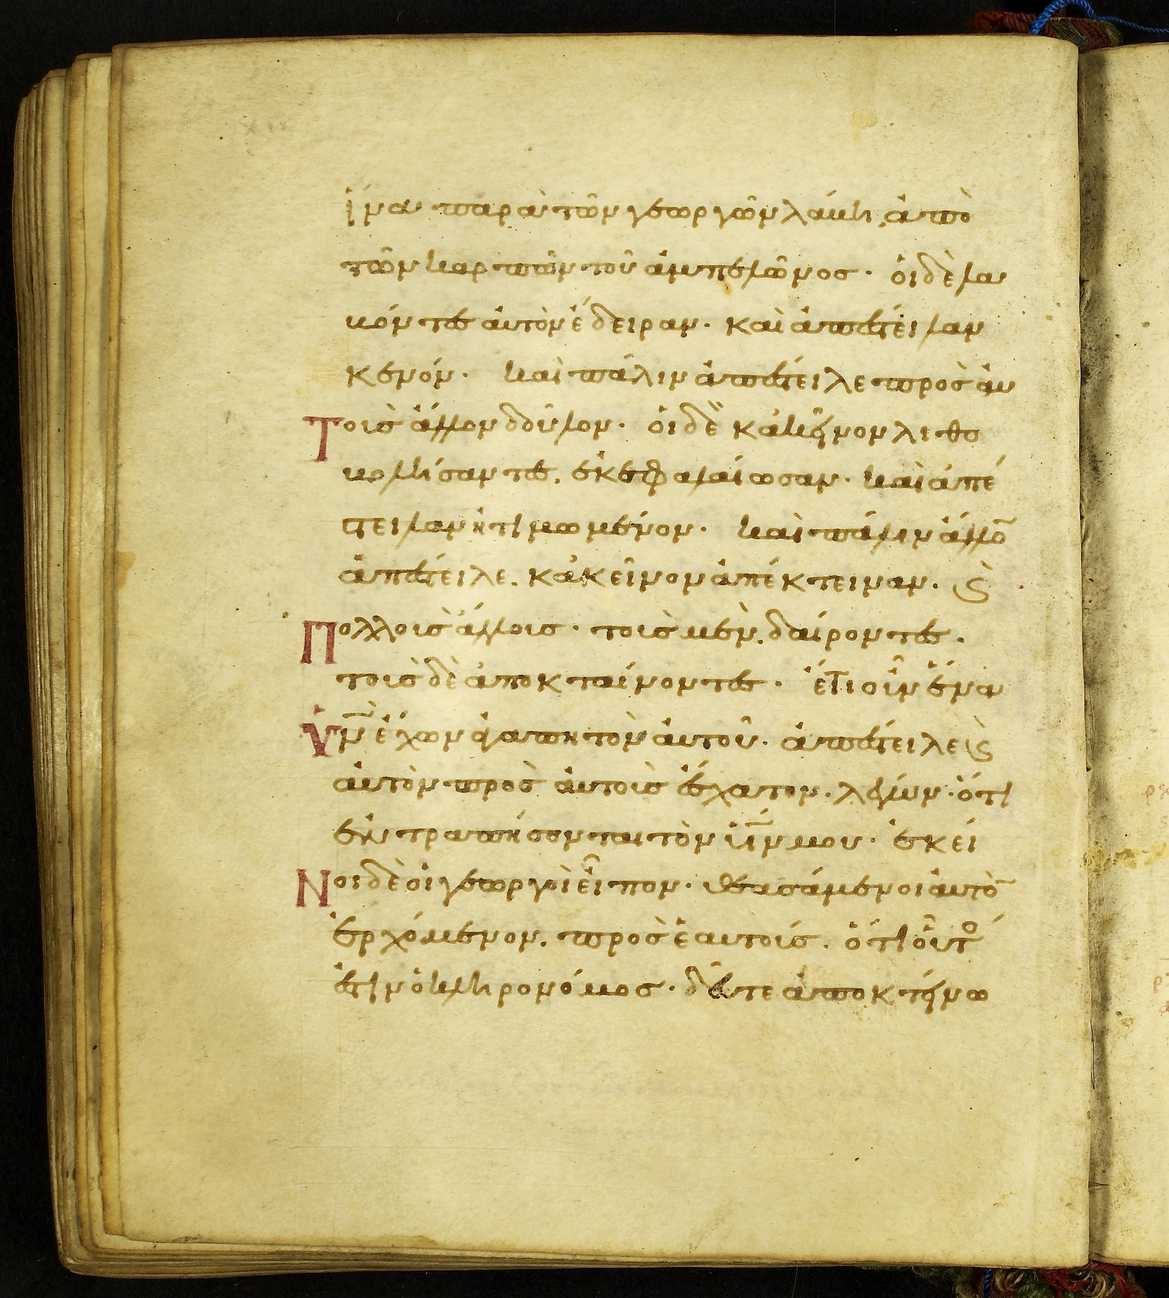 ἵνα παρὰ τῶν γεωργῶν λάβη ἀπὸ
τῶν καρπῶν τοῦ ἀμπελῶνος· οἱ δὲ λα
βόντες αὐτὸν ἔδειραν· καὶ ἀπέστειλαν
κενόν· καὶ πάλιν ἀπέστειλε πρὸς αὐ
Τοὺς ἄλλον δοῦλον· οἱ δὲ κἀκεῖνον λιθο
βολήσαντες, ἐκεφαλαίωσαν· καὶ ἀπέ
στειλαν ἠτιμωμένον· καὶ πάλιν ἄλλο̅
ἀπέστειλε. κἀκεῖνον ἀπέκτειναν. ϗ
Πολλοὺς ἄλλους· τοὺς μὲν, δαίροντες.
τοὺς δὲ ἀποκταίνοντες· ἔτι οὖν ἕνα
Υν̅ ἔχων ἀγαπητὸν αὐτοῦ· ἀπέστειλε ϗ
αὐτὸν πρὸς αὐτοὺς ἔσχατον. λέγων· ὅτι
ἐντραπήσονται τὸν υἱν̅ μου· ἐκεῖ
Νοι δὲ οἱ γεωργοὶ εἶπον· θεασάμενοι αὐτὸ̅
ἐρχόμενον. πρὸς ἑαυτούς. ὅτι οὗτο
ἐστιν ὁ κληρονόμος· δεῦτε ἀποκτήνω